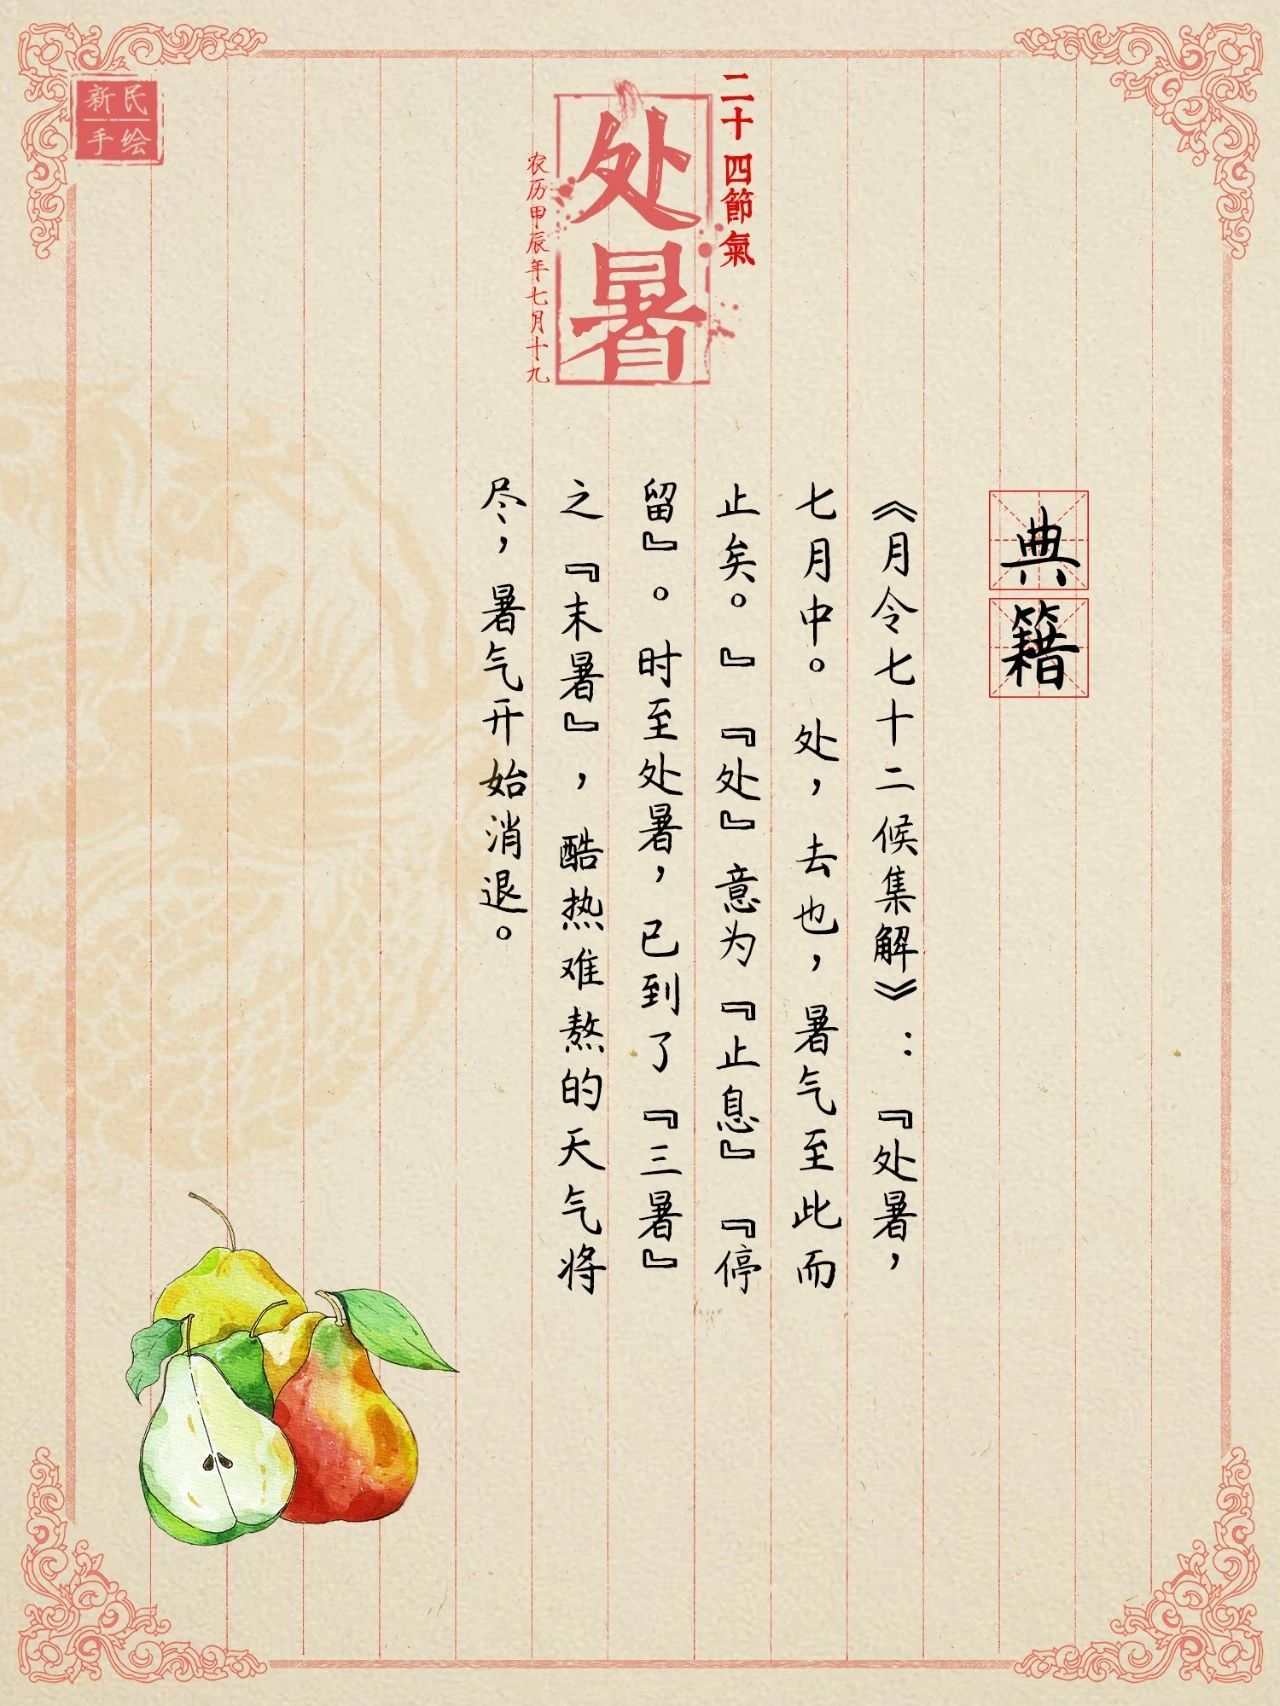 新民
手绘
二十四節氣
处暑
农历甲辰年七月十九
典籍
《月令七十二候集解》：『处暑，
七月中。处，去也，暑气至此而
止矣。』『处』意为『止息』『停
留』。时至处暑，已到了『三暑』
之『末暑』，酷热难熬的天气将
尽，暑气开始消退。